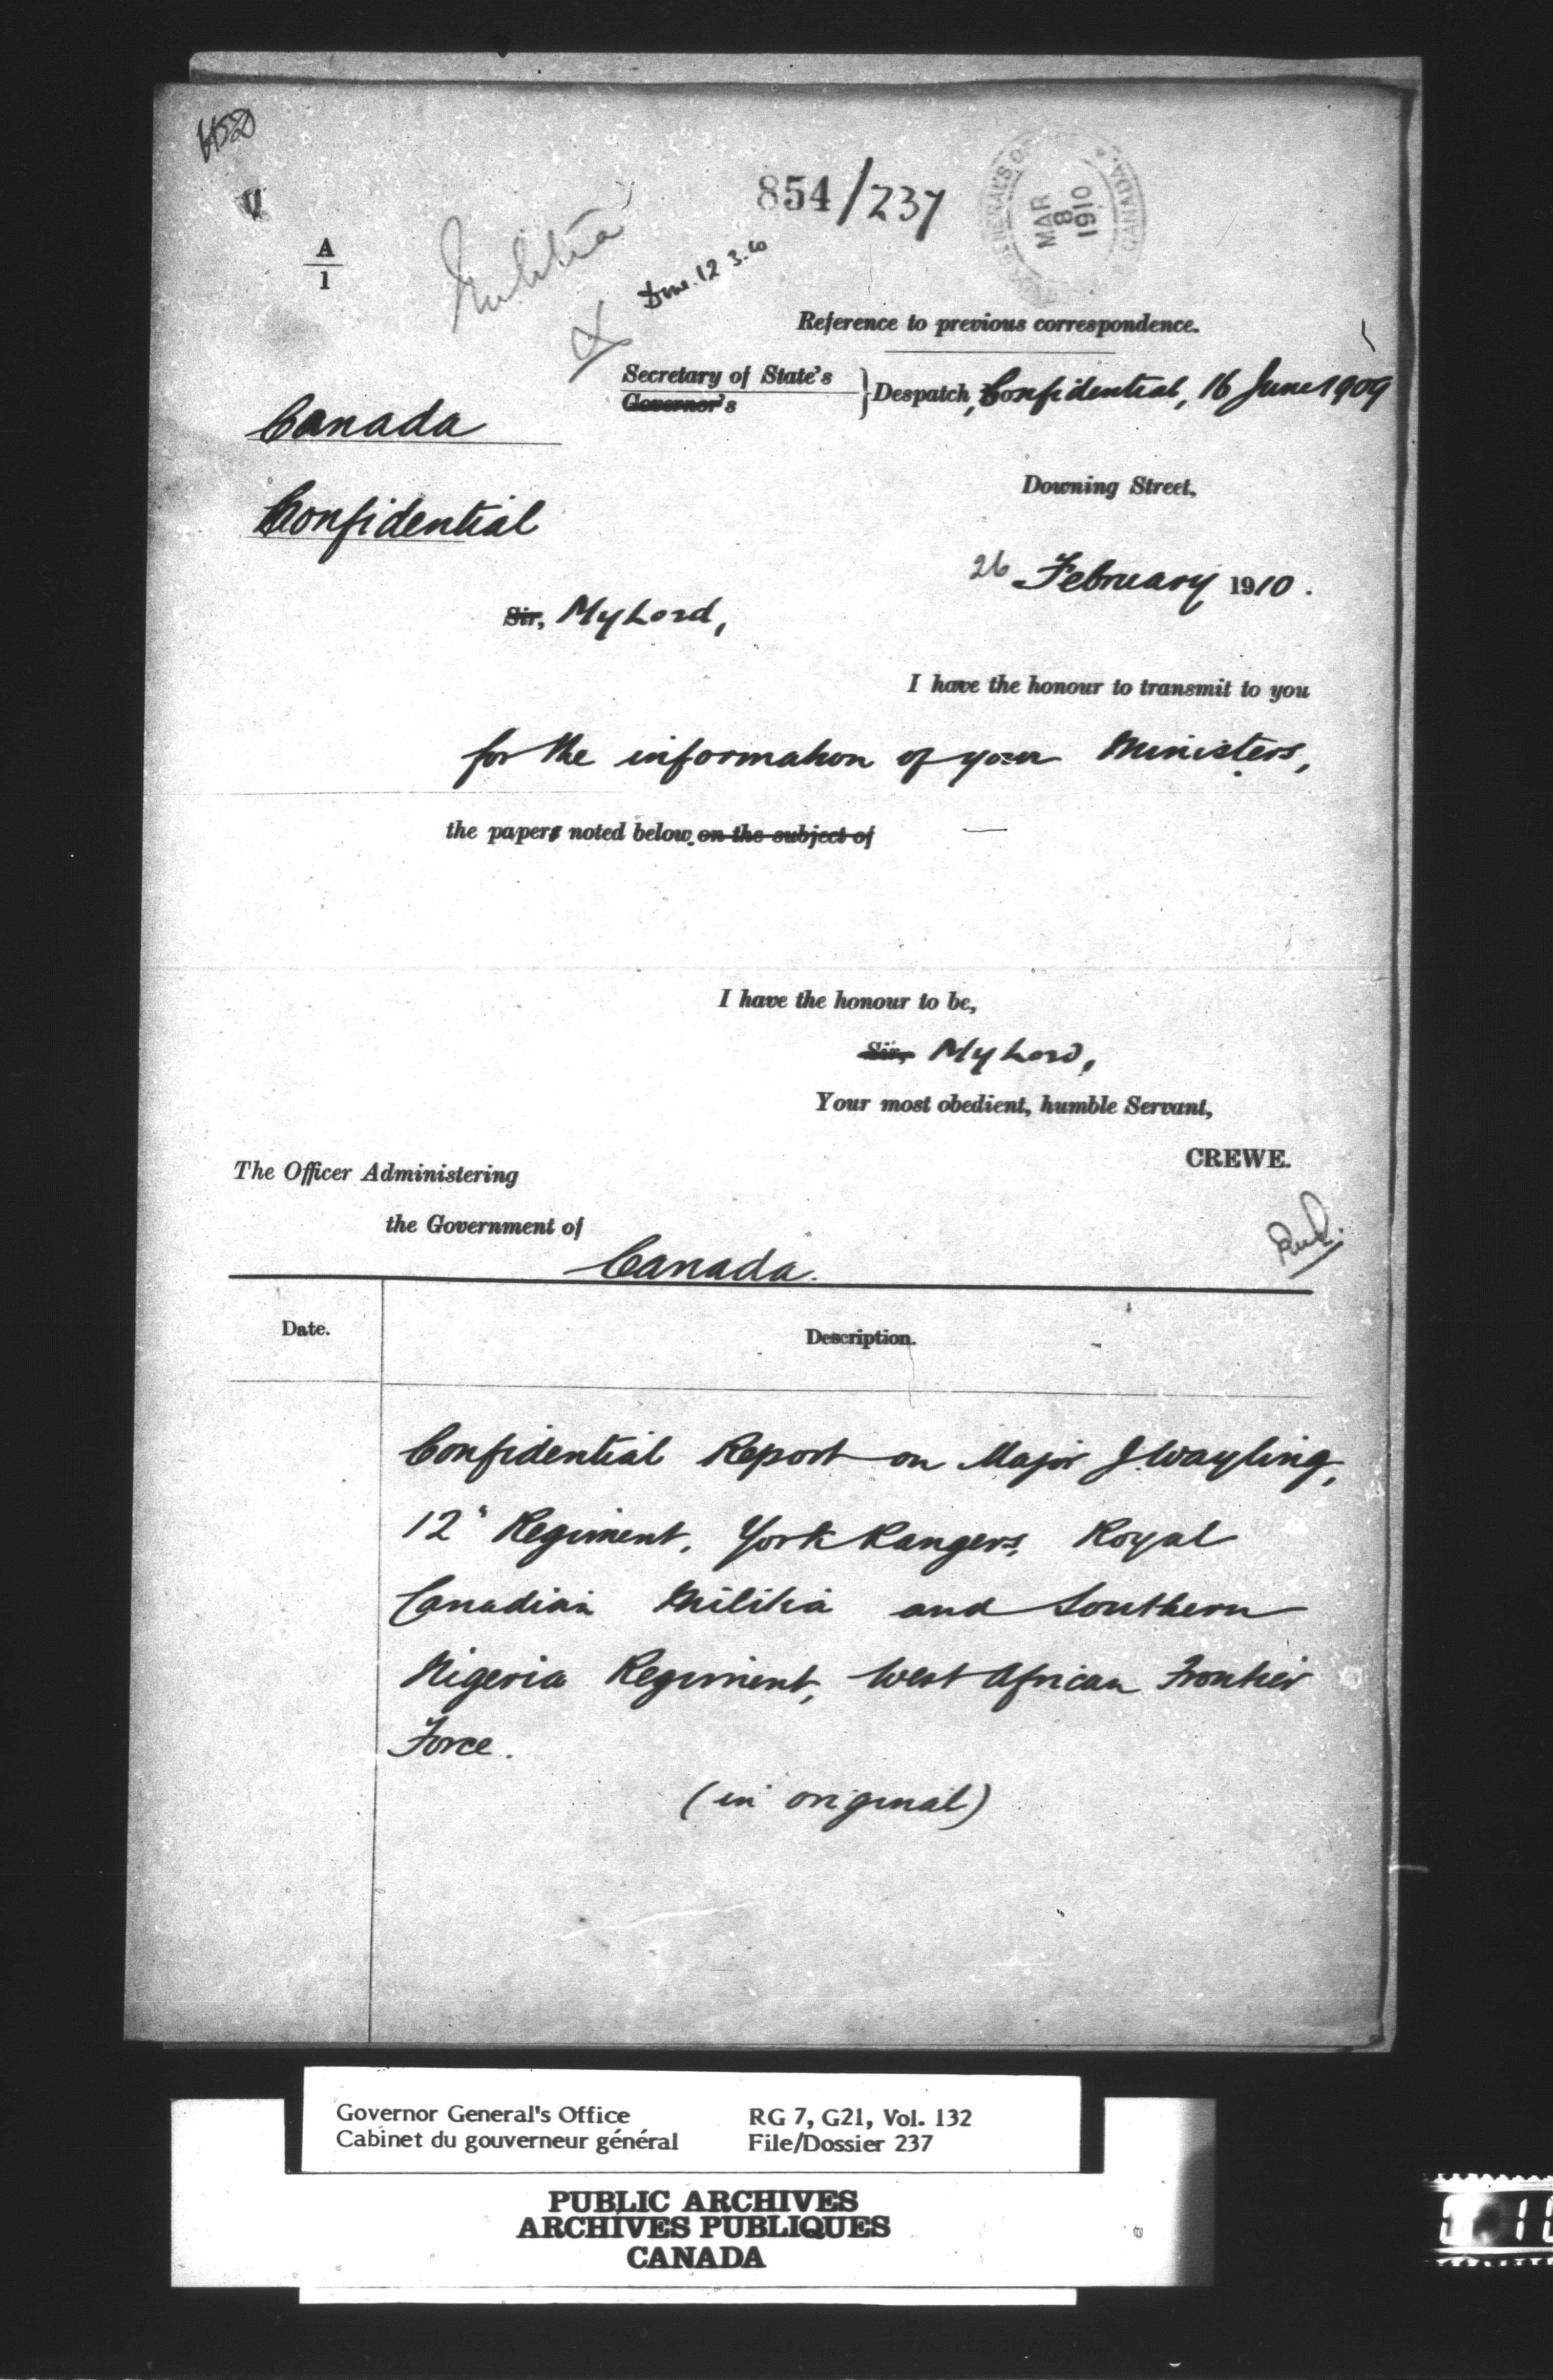 854/237
GENERAL'S O
MAR
8
1910
CANADA
A
1
Militia
12.3.10
Reference to previous correspondence.
Secretary of State's
Governor's
Despatch, Confidential, 16 June 1909
Canada
Downing Street,
Confidential
26 February 1910.
Sir, My Lord,
I have the honour to transmit to you
for the information of your Ministers,
the papers noted below on the subject of
I have the honour to be,
Sir, My Lord,
Your most obedient, humble Servant,
CREWE.
The Officer Administering
the Government of
Canada.
Date.
Description.
Confidential Report on Major J. Wayling,
12" Regiment, York Rangers, Royal
Canadian Militia and Southern
Nigeria Regiment, West African Frontier
Force.
(in original)
Governor General's Office
Cabinet du gouverneur général
RG 7, G21, Vol. 132
File/Dossier 237
PUBLIC ARCHIVES
ARCHIVES PUBLIQUES
CANADA